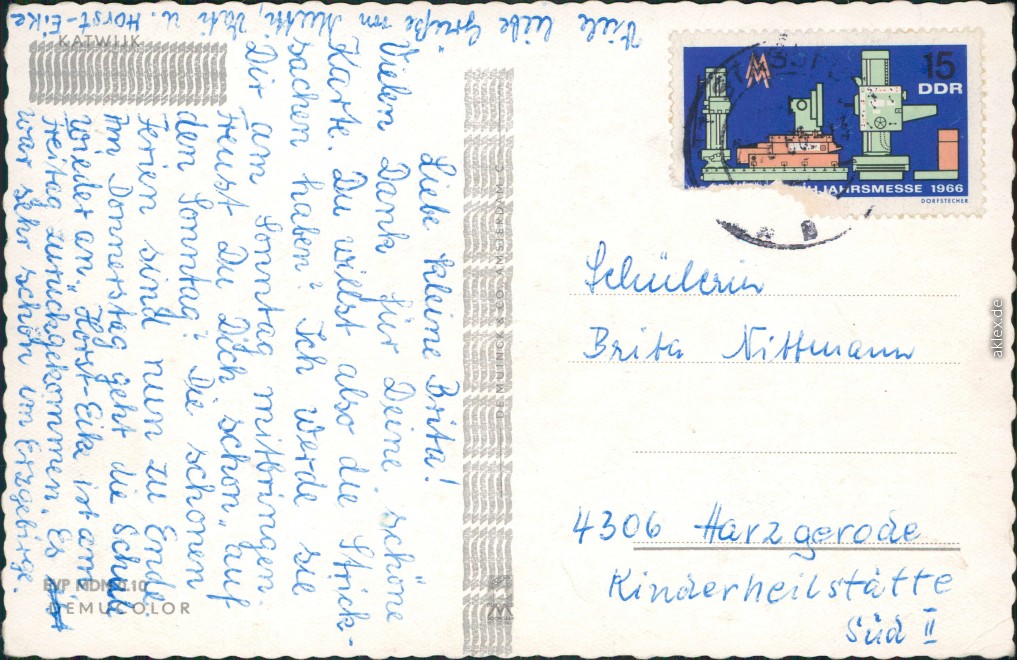 Liebe kleine Brita!
Vielen Dank für Deine schöne
Karte. Du willst also die Strick-
sachen haben? Ich werde sie
Dir am Sonntag mitbringen.
Freust Du Dich schon auf
den Sonntag? Die schönen
Ferien sind nun zu Ende.
Am Donnerstag geht die Schule
wieder an. Horst-Eike ist am
Freitag zurückgekommen. Es
war sehr schön im Erzgebirge.
Viele liebe Grüße von Mutti, Vati u. Horst-Eike
KATWIJK
EVP MDN 0.10
DEMUCOLOR
DE MUINCK & CO. AMSTERDAM-C.
15
DDR
JAHRSMESSE 1966
DORFSTECHER
Schülerin
Brita Nittmann
4306 Harzgerode
Kinderheilstätte
Süd II
aklex.de